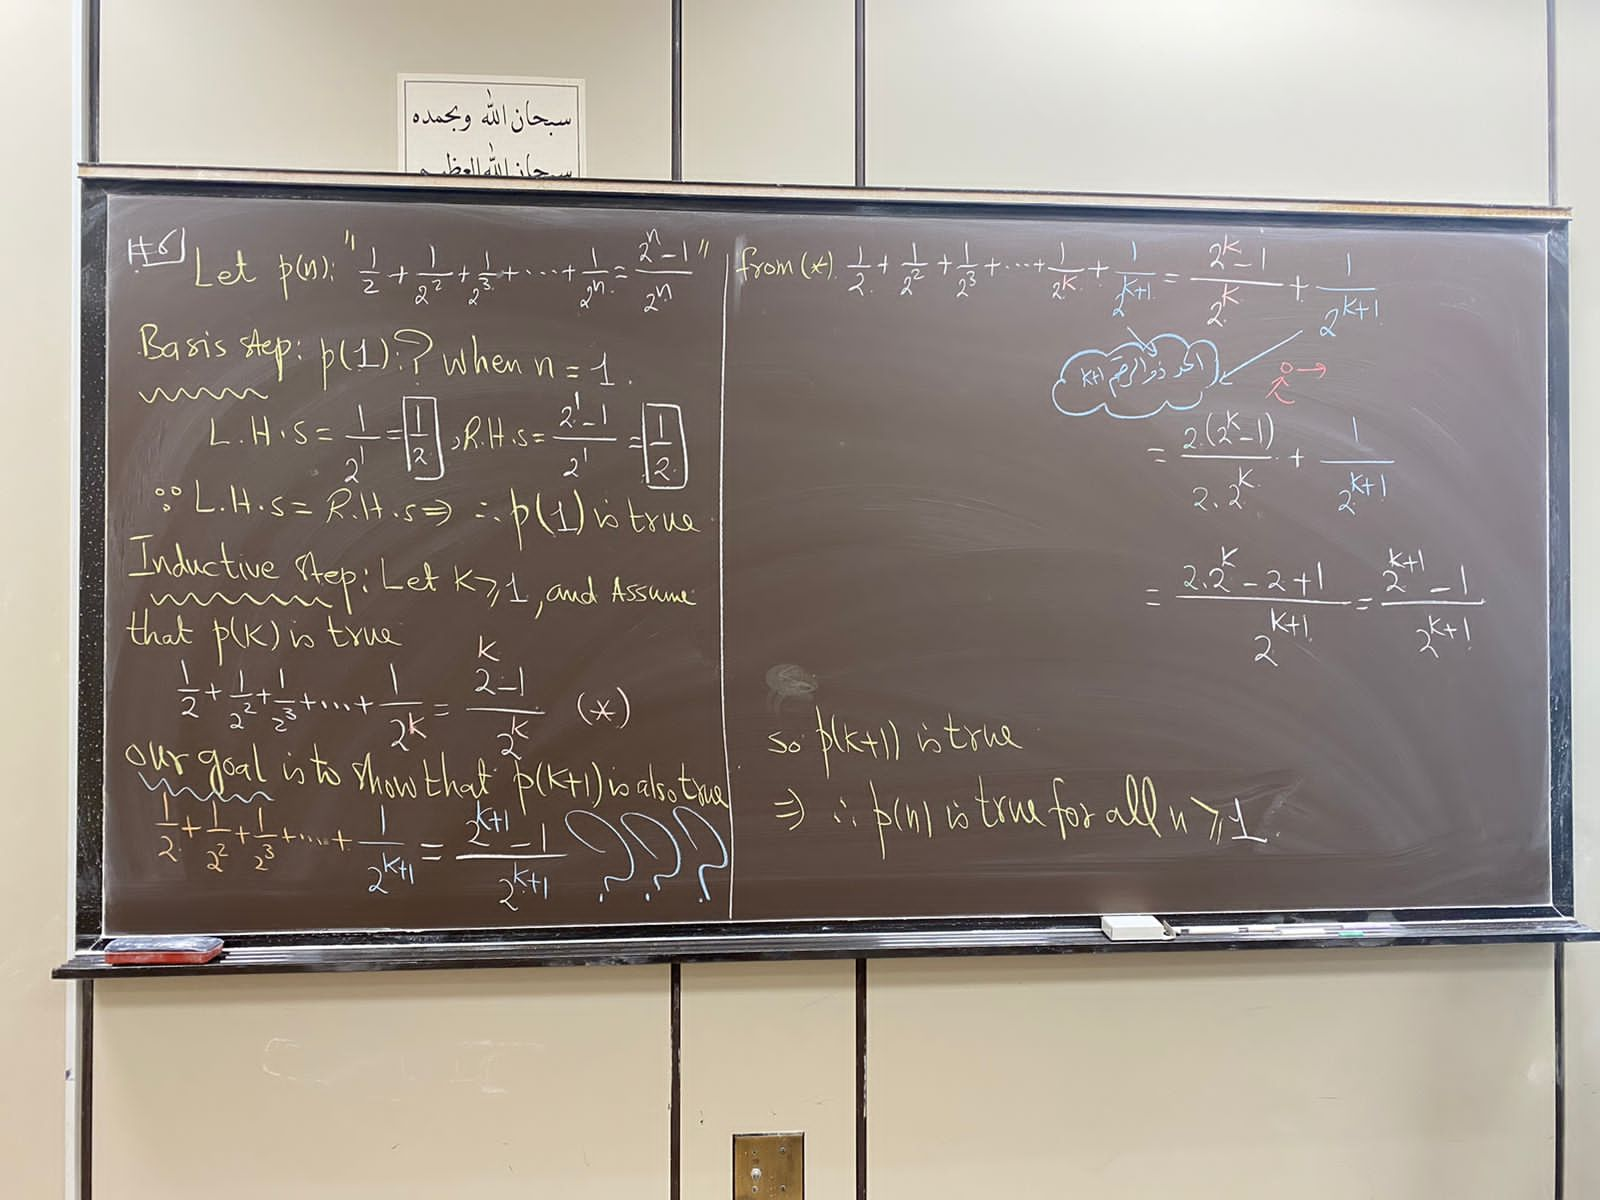 سبحان الله وبحمده
سبحان الله العظيم
#6 Let p(n): "1/2 + 1/2² + 1/2³ + ... + 1/2ⁿ = (2ⁿ - 1)/2ⁿ"
Basis step: p(1):? when n = 1.
L.H.S = 1/2¹ = 1/2, R.H.S = (2¹ - 1)/2¹ = 1/2
∵ L.H.S = R.H.S ⇒ ∴ p(1) is true
Inductive step: Let K ≥ 1, and Assume
that p(K) is true
1/2 + 1/2² + 1/2³ + ... + 1/2^K = (2^K - 1)/2^K (*)
our goal is to show that p(K+1) is also true
1/2 + 1/2² + 1/2³ + ... + 1/2^(K+1) = (2^(K+1) - 1)/2^(K+1) ???
from (*) 1/2 + 1/2² + 1/2³ + ... + 1/2^K + 1/2^(K+1) = (2^K - 1)/2^K + 1/2^(K+1)
الحد ذو الرقم K+1
= 2.(2^K - 1)/(2.2^K) + 1/2^(K+1)
= (2.2^K - 2 + 1)/2^(K+1) = (2^(K+1) - 1)/2^(K+1)
so p(K+1) is true
⇒ ∴ p(n) is true for all n ≥ 1.